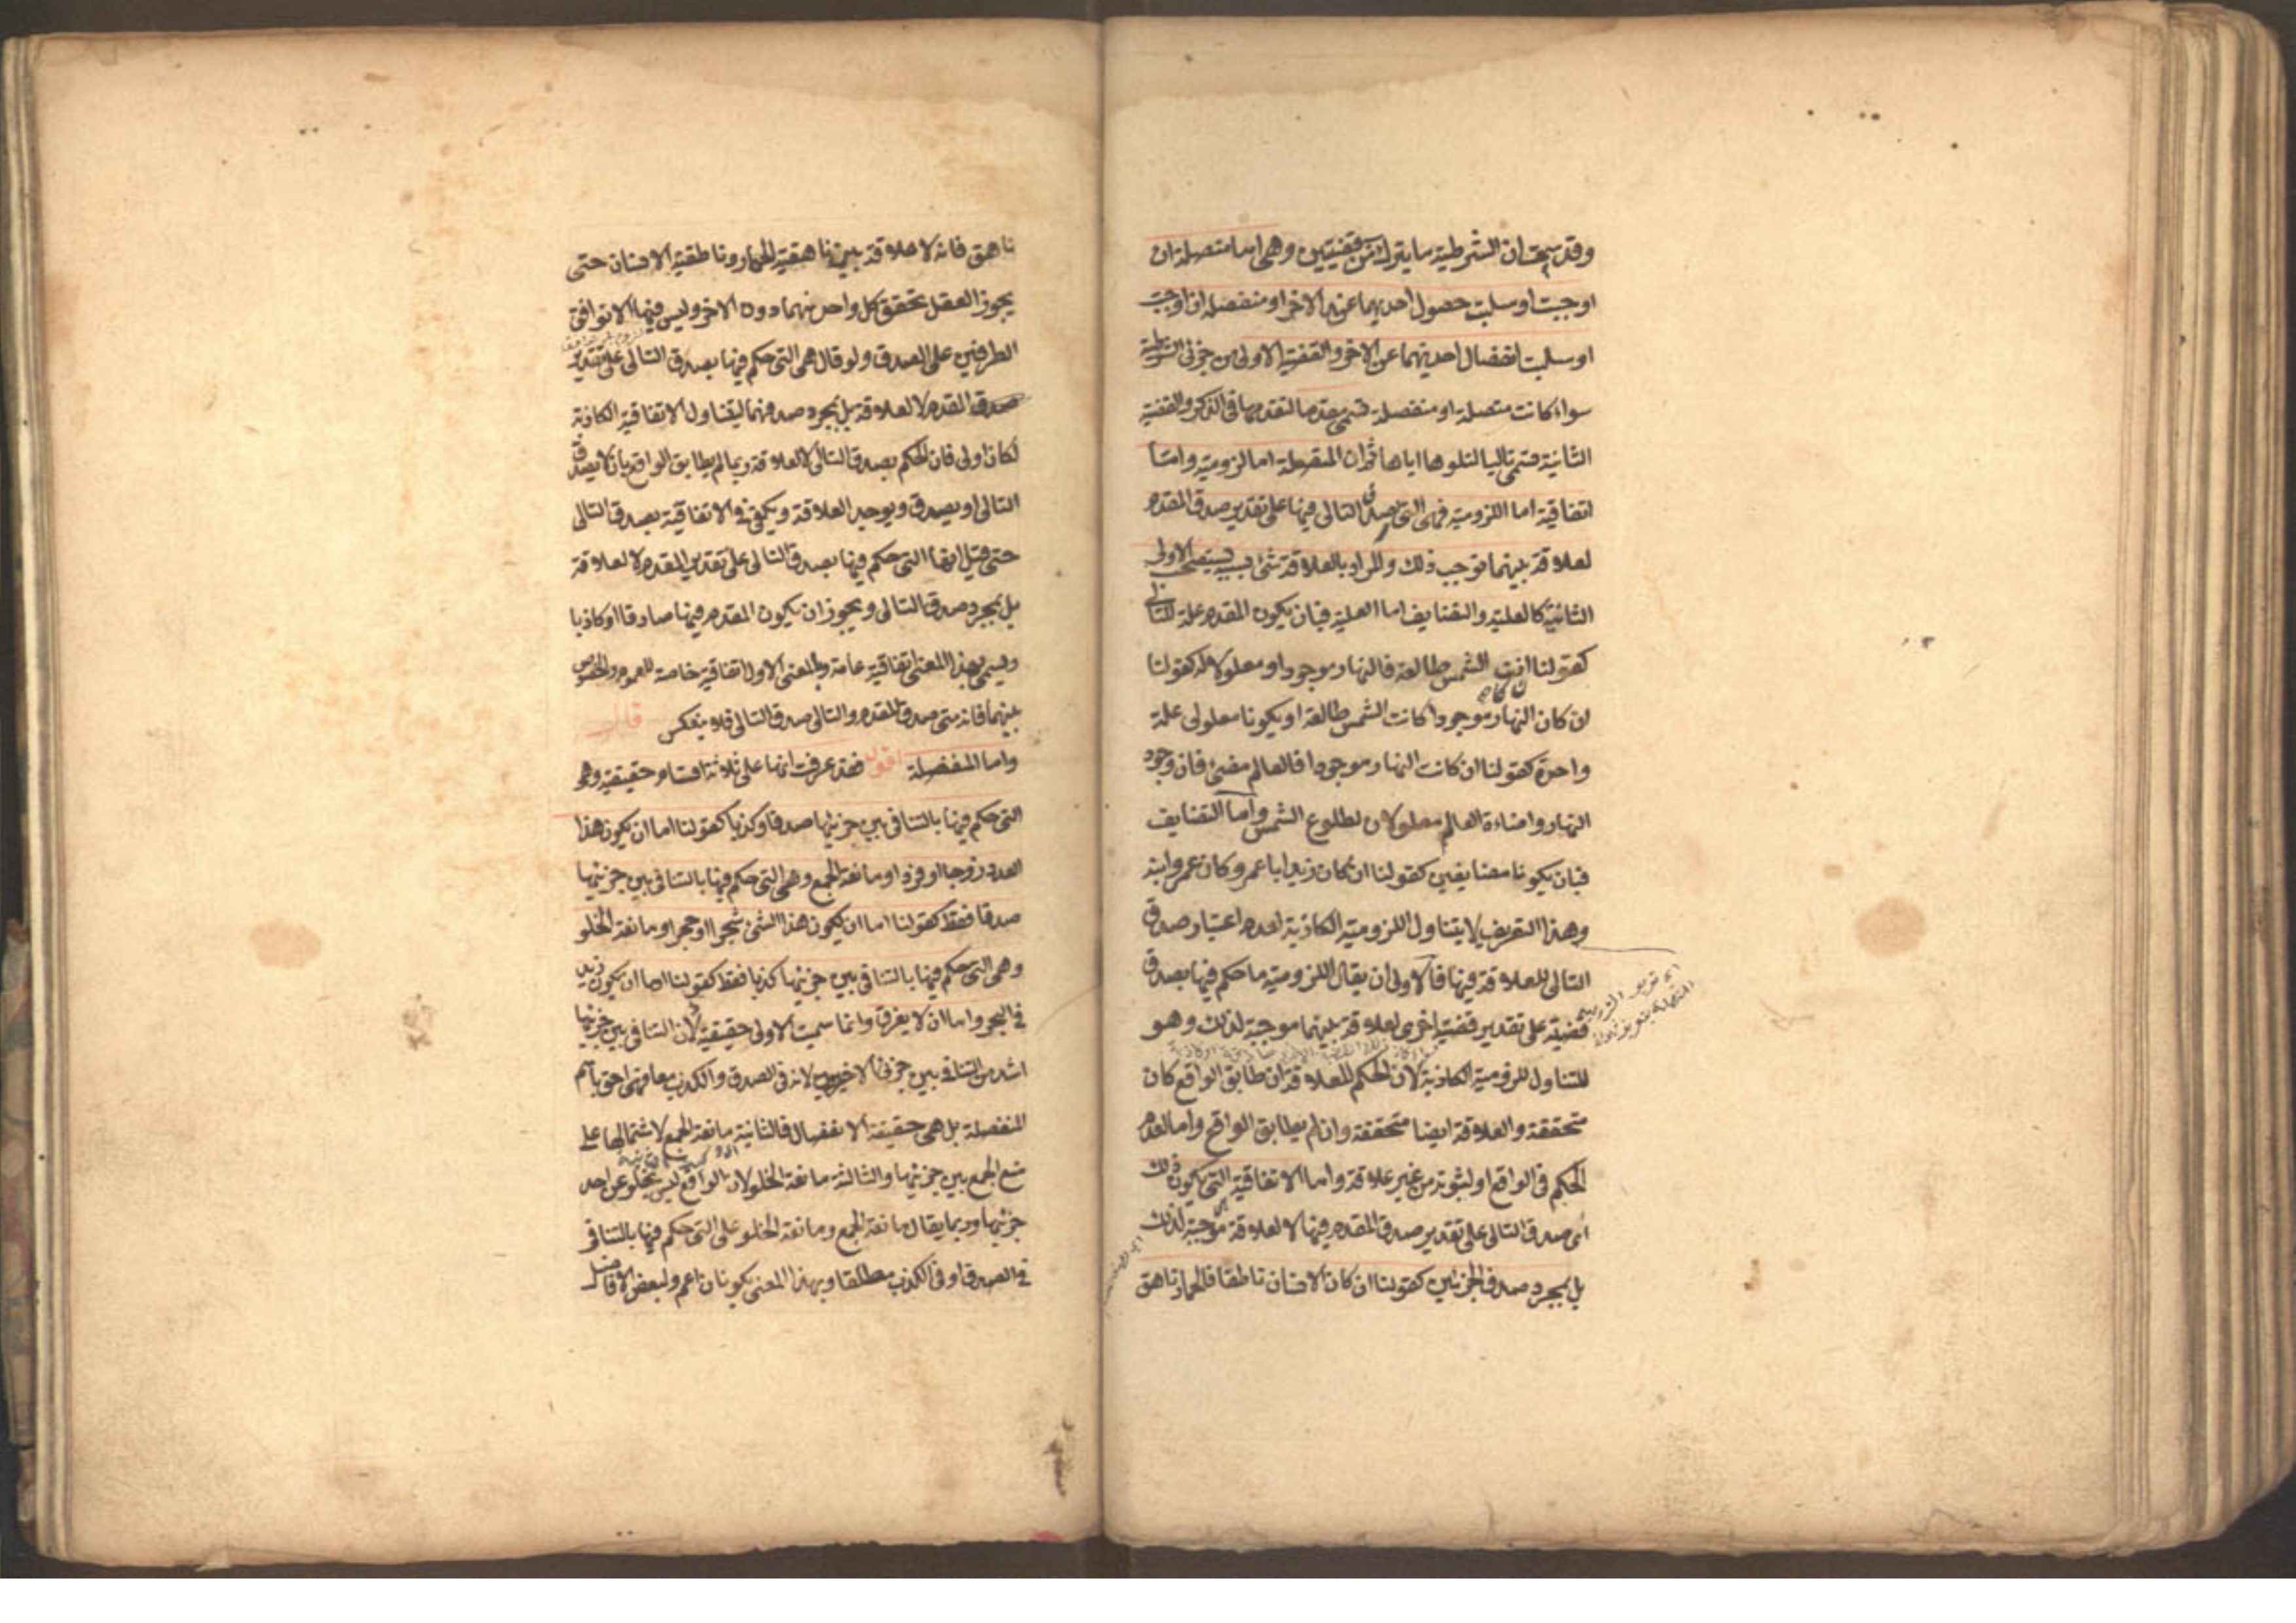 وقد سبق ان الشرطية ما يتركب من قضيتين وهى اما متصلة ان
اوجبت او سلبت حصول احديهما عند الاخر او منفصلة ان اوجبت
او سلبت انفصال احديهما عن الاخر والقضية الاولى من جزئى الشرطية
سواء كانت متصلة او منفصلة تسمى مقدما لتقدمها فى الذكر والقضية
الثانية تسمى تاليا لتلوها اياها ثم ان المتصلة اما لزومية واما
اتفاقية اما اللزومية فهى التى يصدق التالى فيها على تقدير صدق المقدم
لعلاقة بينهما توجب ذلك والمراد بالعلاقة شئ بسببه يستصحب الاولى
الثانية كالعلية والتضايف اما العلية فبان يكون المقدم علة للتالى
كقولنا ان كانت الشمس طالعة فالنهار موجود او معلولا له كقولنا
ان كان النهار موجودا كانت الشمس طالعة او يكونا معلولى علة
واحدة كقولنا ان كانت النهار موجودا فالعالم مضئ فان وجود
النهار واضاءة العالم معلولان لطلوع الشمس واما التضايف
فبان يكونا متضايفين كقولنا ان كان زيد ابا عمرو كان عمرو ابنه
وهذا التعريف لا يتناول اللزومية الكاذبة لعدم اعتبار صدق
التالى للعلاقة فيها فالاولى ان يقال اللزومية ما حكم فيها بصدق
قضية على تقدير قضية اخرى لعلاقة بينهما موجبة لذلك وهو
للتناول للزومية الكاذبة لان الحكم للعلاقة ان طابق الواقع كان
متحققة والعلاقة ايضا متحققة وان لم يطابق الواقع واما لعدم
الحكم فى الواقع او لثبوته من غير علاقة واما الاتفاقية التى يكون ذلك
اى صدق التالى على تقدير صدق المقدم فيها لا لعلاقة موجبة لذلك
بل بمجرد صدق الجزئين كقولنا ان كان الانسان ناطقا فالحمار ناهق
ناهق فانه لا علاقة بين ناهقية الحمار وناطقية الانسان حتى
يجوز العقل تحقق كل واحد منهما دون الاخر وليس فيها الا توافق
الطرفين على الصدق ولو قال هى التى حكم فيها بصدق التالى على تقدير
صدق المقدم لا لعلاقة بل بمجرد صدقهما ليتناول الاتفاقية الكاذبة
لكان اولى فان الحكم بصدق التالى لا لعلاقة ربما لم يطابق الواقع بان لا يصدق
التالى او يصدق ويوجد العلاقة ويكفى فى الاتفاقية بصدق التالى
حتى قيل انها التى حكم فيها بصدق التالى على تقدير المقدم لا لعلاقة
بل بمجرد صدق التالى ويجوز ان يكون المقدم فيها صادقا او كاذبا
ويسمى بهذا المعنى اتفاقية عامة وبالمعنى الاول اتفاقية خاصة للعموم والخصوص
بينهما فانه متى صدق المقدم والتالى صدق التالى فلا ينعكس قال
واما المنفصلة اقول قد عرفت انها على ثلاثة اقسام حقيقية وهى
التى حكم فيها بالتنافى بين جزئيها صدقا وكذبا كقولنا اما ان يكون هذا
العدد زوجا او فردا او مانعة الجمع وهى التى حكم فيها بالتنافى بين جزئيها
صدقا فقط كقولنا اما ان يكون هذا الشئ شجرا او حجرا او مانعة الخلو
وهى التى حكم فيها بالتنافى بين جزئيها كذبا فقط كقولنا اما ان يكون زيد
فى البحر واما ان لا يغرق وانما سميت الاولى حقيقية لان التنافى بين جزئيها
اشد من التنافى بين جزئى الاخيرين لانه فى الصدق والكذب معا فهى احق باسم
المنفصلة بل هى حقيقة الانفصال فالثانية مانعة الجمع لاشتمالها على
منع الجمع بين جزئيها والثالثة مانعة الخلو لان الواقع ليس يخلو عن احد
جزئيها وربما يقال مانعة الجمع ومانعة الخلو على التى حكم فيها بالتنافى
فى الصدق او فى الكذب مطلقا وبهذا المعنى يكونان اعم ولبعض الافاضل